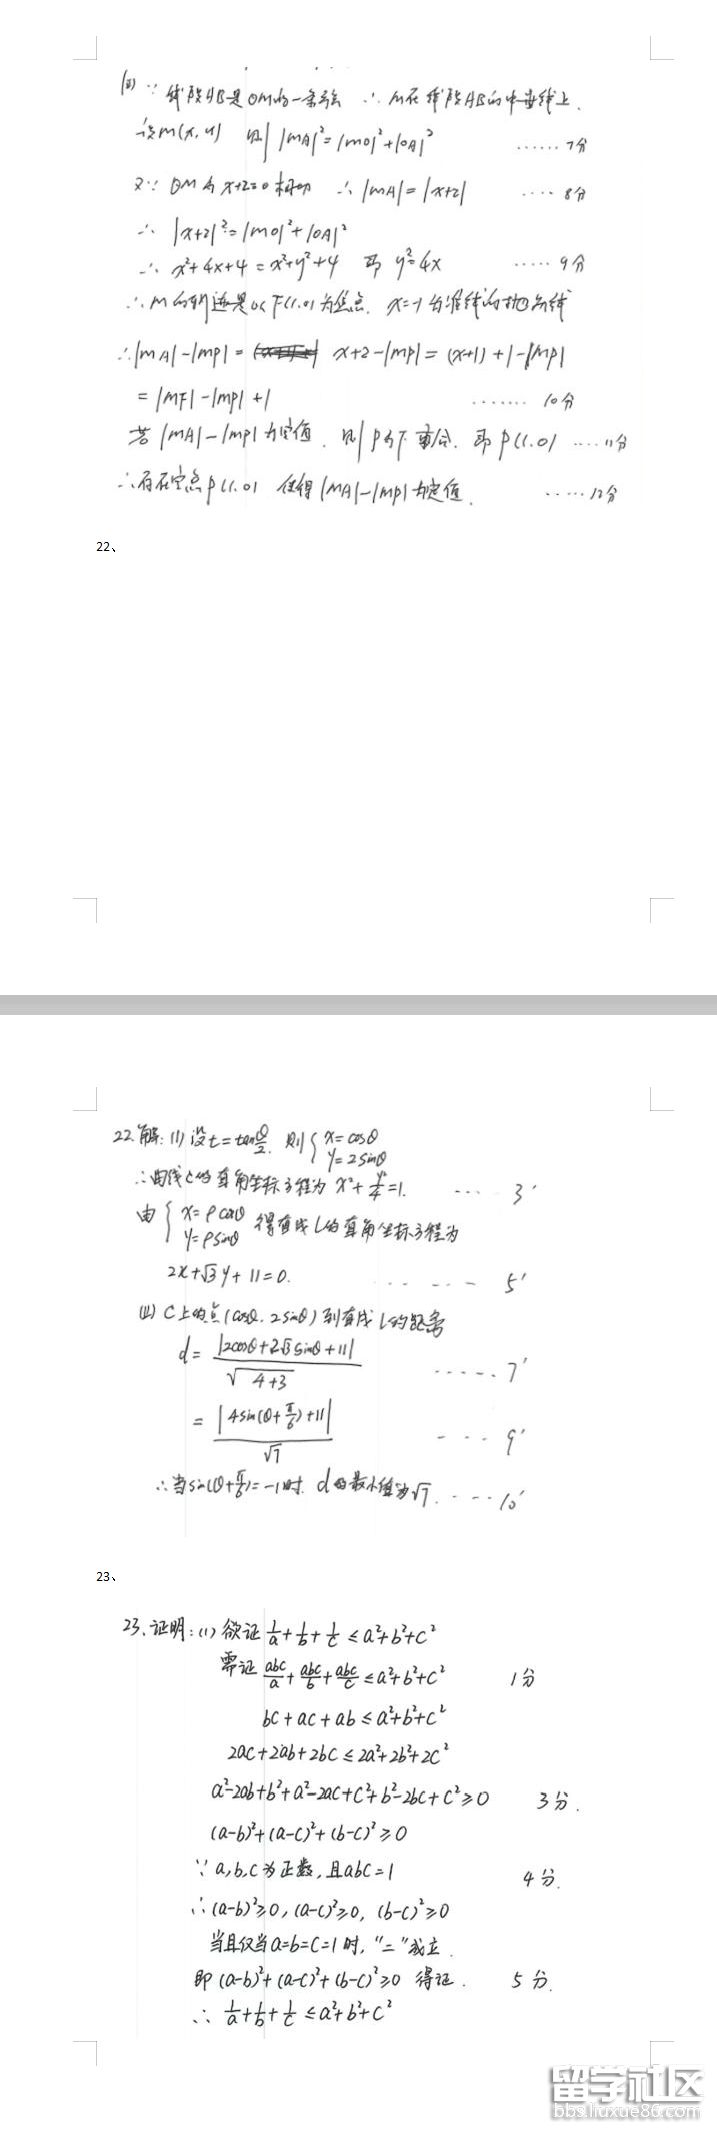 (Ⅱ) ∵ 线段AB是⊙M的一条弦 ∴ M在线段AB的中垂线上.
设M(x,y) 则 |MA|²=|MO|²+|OA|² ……7分
又∵ ⊙M与x+2=0相切 ∴ |MA|=|x+2| ……8分
∴ |x+2|²=|MO|²+|OA|²
∴ x²+4x+4=x²+y²+4 即 y²=4x ……9分
∴ M的轨迹是以F(1,0)为焦点, x=-1为准线的抛物线
∴|MA|-|MP|= x+2-|MP|=(x+1)+1-|MP|
=|MF|-|MP|+1 ……10分
若|MA|-|MP|为定值, 则P与F重合, 即P(1,0) ……11分
∴存在定点P(1,0) 使得|MA|-|MP|为定值. ……12分
22、
22.解: (1) 设t=tan θ/2, 则 { x=cosθ y=2sinθ
∴曲线C的直角坐标方程为 x²+y²/4=1. ……3'
由 { x=ρcosθ y=ρsinθ 得直线l的直角坐标方程为
2x+√3y+11=0. ……5'
(Ⅱ) C上的点(cosθ, 2sinθ)到直线l的距离
d= |2cosθ+2√3sinθ+11| / √(4+3) ……7'
= |4sin(θ+π/6)+11| / √7 ……9'
∴当sin(θ+π/6)=-1时, d的最小值为√7. ……10'
23、
23.证明:(1) 欲证 1/a+1/b+1/c≤a²+b²+c²
需证 abc/a+abc/b+abc/c≤a²+b²+c² 1分
bc+ac+ab≤a²+b²+c²
2ac+2ab+2bc≤2a²+2b²+2c²
a²-2ab+b²+a²-2ac+c²+b²-2bc+c²≥0 3分.
(a-b)²+(a-c)²+(b-c)²≥0
∵a,b,c为正数,且abc=1 4分.
∴(a-b)²≥0,(a-c)²≥0, (b-c)²≥0
当且仅当a=b=c=1时,"="成立.
即(a-b)²+(a-c)²+(b-c)²≥0 得证. 5分.
∴ 1/a+1/b+1/c≤a²+b²+c²
留学社区
bbs.liuxue86.com